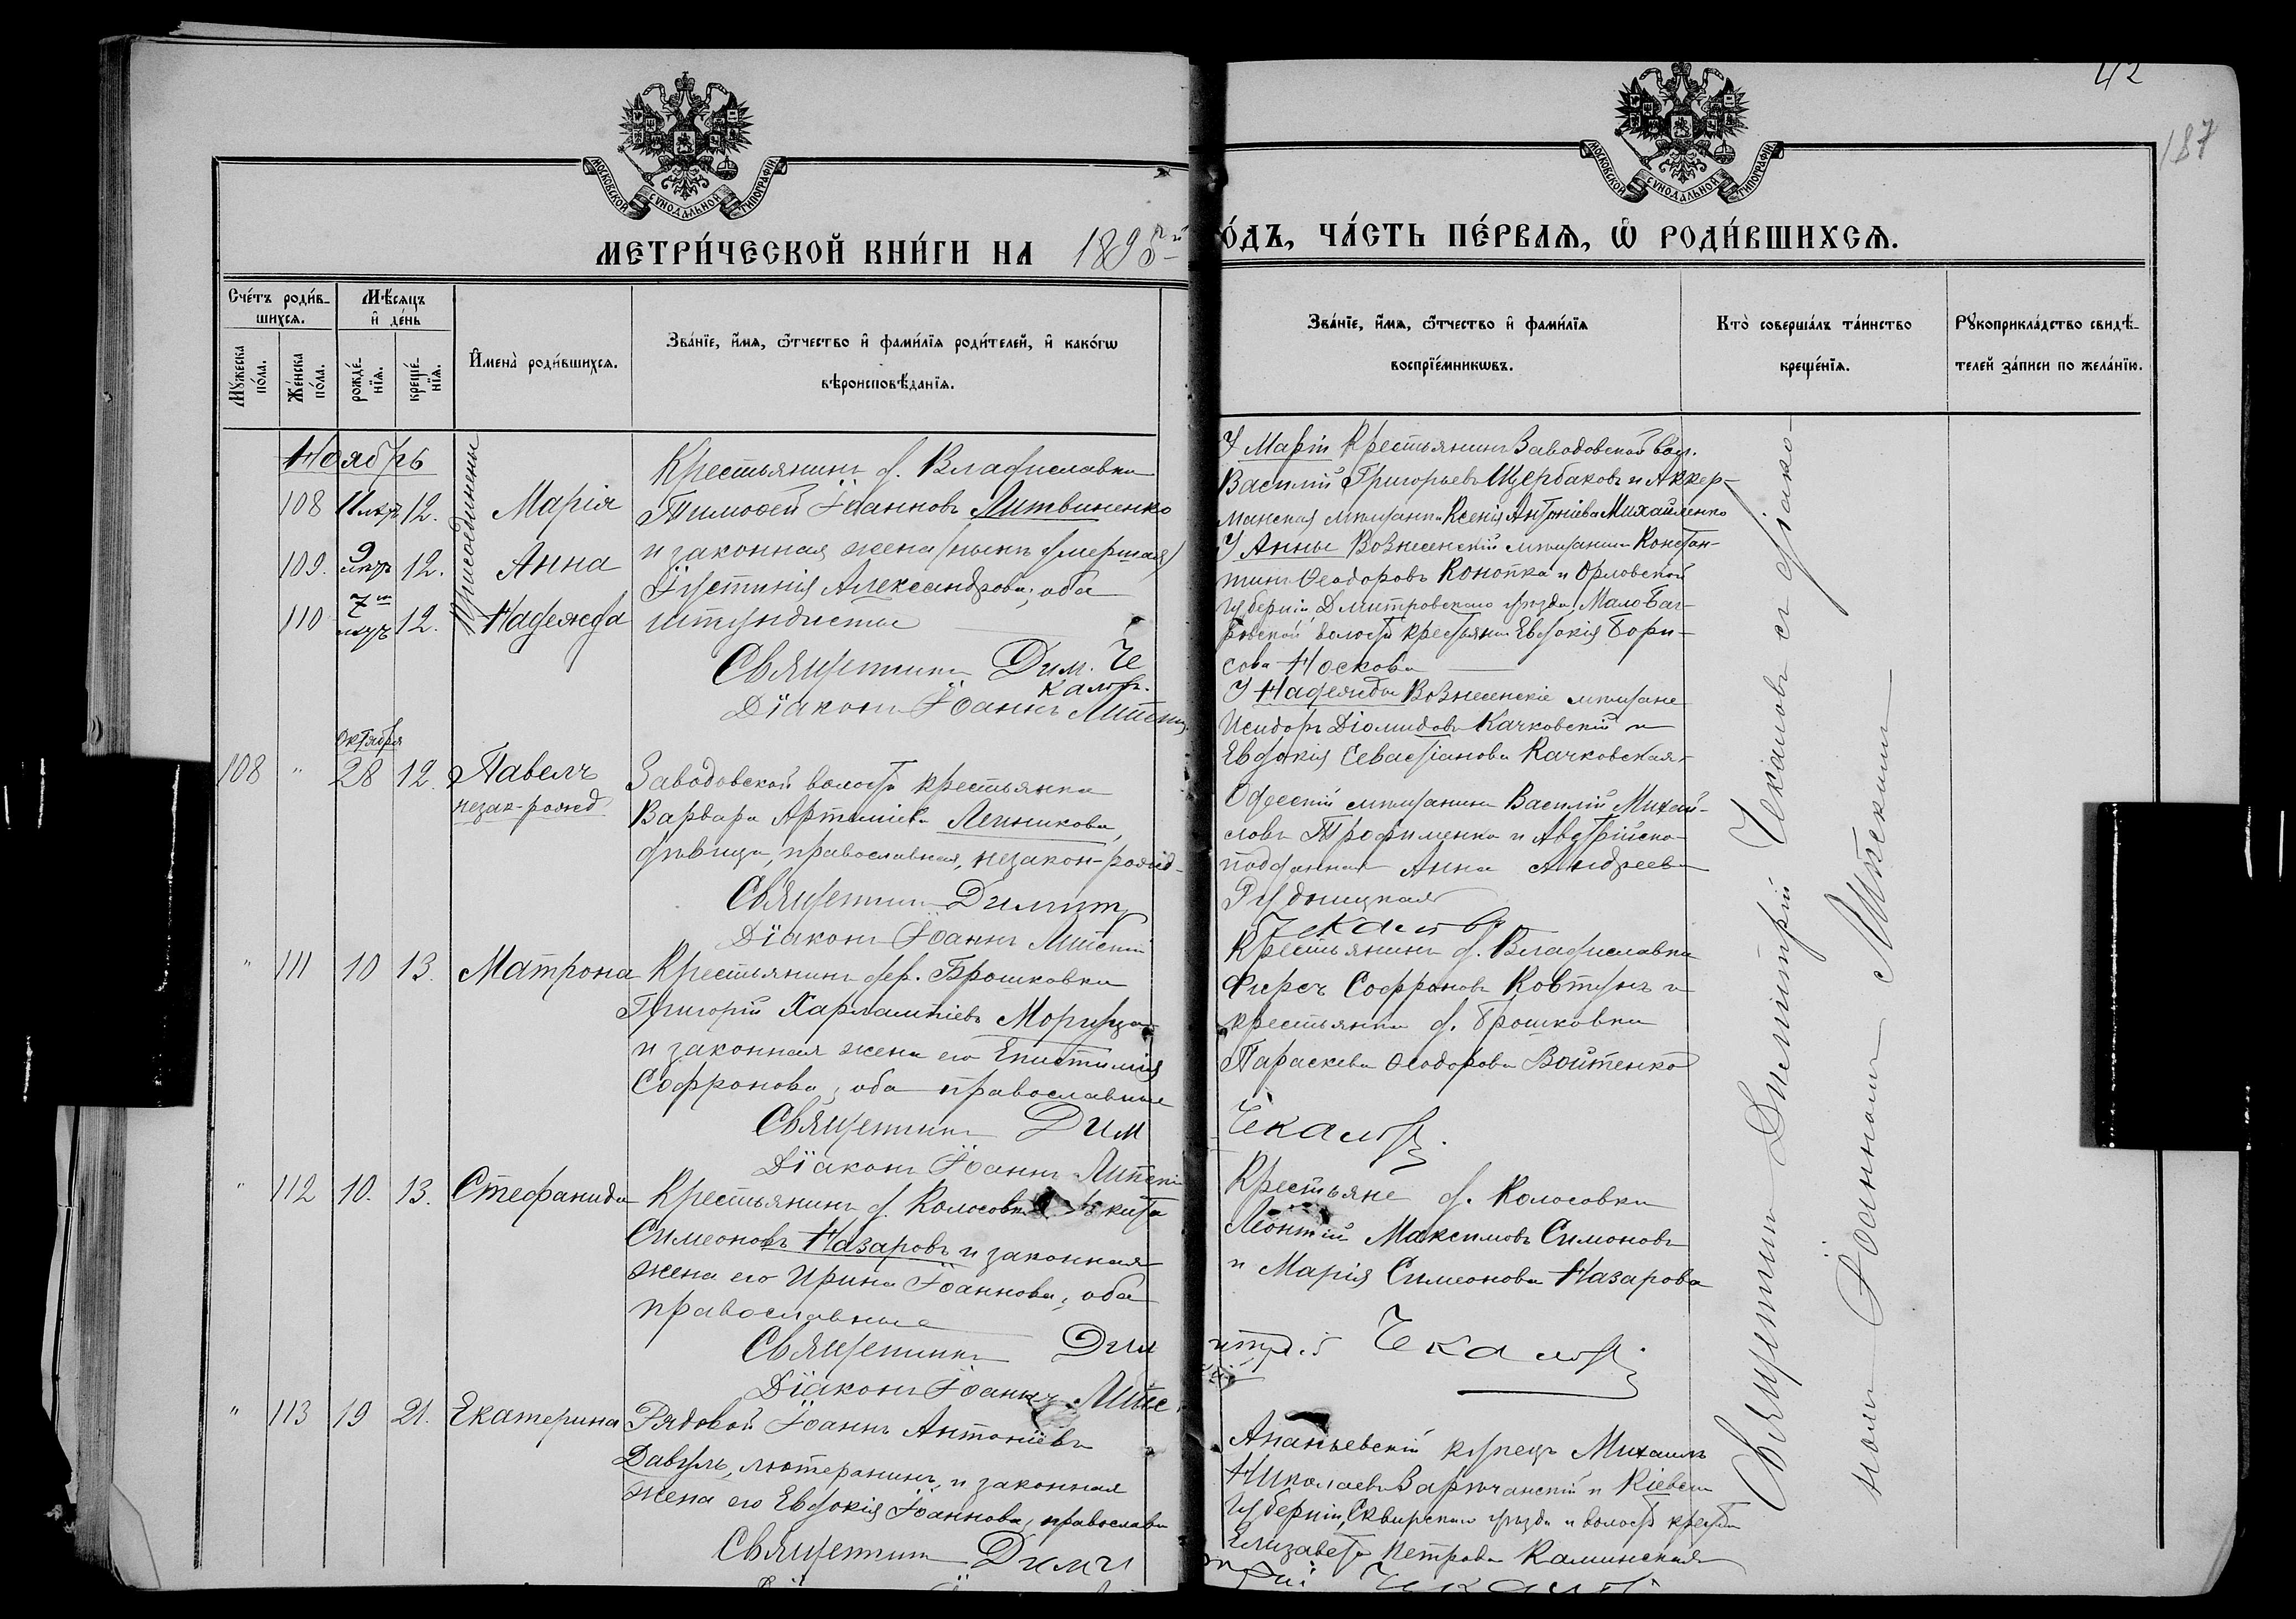 42
187
МОСКОВСКОЙ СѴНОДАЛЬНОЙ ТИПОГРАФІИ
МОСКОВСКОЙ СѴНОДАЛЬНОЙ ТИПОГРАФІИ
МЕТРИ́ЧЕСКОЙ КНИ́ГИ НА 189
О́ДЪ, ЧА́СТЬ ПЕ́РВАЯ, Ѿ РОДИ́ВШИХСЯ.
Сче́тъ роди́в-
шихся.
Мѣ́сяцъ
и҆ де́нь
Мꙋ́жеска
по́ла.
Же́нска
по́ла.
рожде́-
нїя.
креще́-
нїя.
И҆мена̀ роди́вшихся.
Зва́нїе, и҆́мя, ѻ҆́тчество и҆ фами́лїя роди́телей, и҆ како́гѡ
вѣроисповѣ́данїя.
Зва́нїе, и҆́мя, ѻ҆́тчество и҆ фами́лїя
воспрїе́мникѡвъ.
Кто̀ соверша́лъ та́инство
креще́нїя.
Рꙋкоприкла́дство свидѣ́-
телей за́писи по жела́нїю.
Ноябрь
Присоединены
108 11 12. Марія
109. 9 12. Анна
110 7 12. Надежда
Крестьянинъ д. Владиславки
Тимоѳей Іоанновъ Литвиненко
и законная жена (нынѣ умершая)
Іустинія Александрова, оба
штундисты
Священникъ Дим. Че
калов.
Діаконъ Іоаннъ
У Маріи Крестьянинъ Заводовской вол.
Василій Григорьевъ Щербаковъ и Аккер-
манская мѣщанка Ксенія Антоніева Михайленко
У Анны Вознесенскій мѣщанинъ Констан-
тинъ Ѳеодоровъ Конопка и Орловской
губерніи Дмитровскаго уѣзда, Мало-
волости крестьянка Евдокія Бори-
сова Носкова
У Надежды Вознесенскіе мѣщане
Исидоръ Діомидовъ Качковскій и
Евдокія Севастіанова Качковская
Октября
108 " 28 12. Павелъ
незак-рожд
Заводовской волости крестьянка
Варвара Артеміева
дѣвица, православная, незакон-рожд-
Священникъ Димит
Діаконъ Іоаннъ
Одесскій мѣщанинъ Василій Михай-
ловъ Трофименко и Австрійско-
подданная Анна Андреева
Рудницкая
Чекаловъ
" 111 10 13. Матрона
Крестьянинъ дер. Брошковки
Григорій Харлампіевъ
и законная жена его Епистимія
Софронова, оба православные
Священникъ Дим
Діаконъ Іоаннъ
Крестьянинъ д. Владиславки
Фирсъ Софроновъ Ковтунъ и
крестьянка д. Брошковки
Параскева Ѳеодорова Войтенко
Чекаловъ.
" 112 10. 13. Стефанида
Крестьянинъ д. Колосовки
Симеоновъ Назаровъ и законная
жена его Ирина Іоаннова, оба
православные
Священникъ Дим
Діаконъ Іоаннъ
Крестьяне д. Колосовки
Леонтій Максимовъ Симоновъ
и Марія Симеонова Назарова
Чекаловъ
" 113 19 21. Екатерина
Рядовой Іоаннъ Антоніевъ
лютеранинъ, и законная
жена его Евдокія Іоаннова, православн
Священникъ Дими
Ананьевскій купецъ Михаилъ
Николаевъ и Кіевской
губерніи, Сквирскаго уѣзда и волости крестьян
Елизавета Петрова Каминская
Чекаловъ
Священникъ Димитрій Чекаловъ съ діако-
номъ Іоанномъ